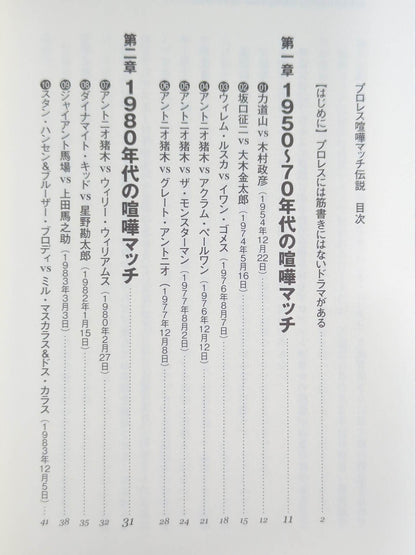 プロレス喧嘩マッチ伝説 目次
【はじめに】プロレスには筋書きにはないドラマがある 2
第一章 1950〜70年代の喧嘩マッチ 11
01 力道山 vs 木村政彦(1954年12月22日) 12
02 坂口征二 vs 大木金太郎(1974年5月16日) 15
03 ウィレム・ルスカ vs イワン・ゴメス(1976年8月7日) 18
04 アントニオ猪木 vs アクラム・ペールワン(1976年12月12日) 21
05 アントニオ猪木 vs ザ・モンスターマン(1977年8月2日) 24
06 アントニオ猪木 vs グレート・アントニオ(1977年12月8日) 28
第二章 1980年代の喧嘩マッチ 31
07 アントニオ猪木 vs ウィリー・ウィリアムス(1980年2月27日) 32
08 ダイナマイト・キッド vs 星野勘太郎(1982年1月15日) 35
09 ジャイアント馬場 vs 上田馬之助(1983年3月3日) 38
10 スタン・ハンセン&ブルーザー・ブロディ vs ミル・マスカラス&ドス・カラス(1983年12月5日) 41